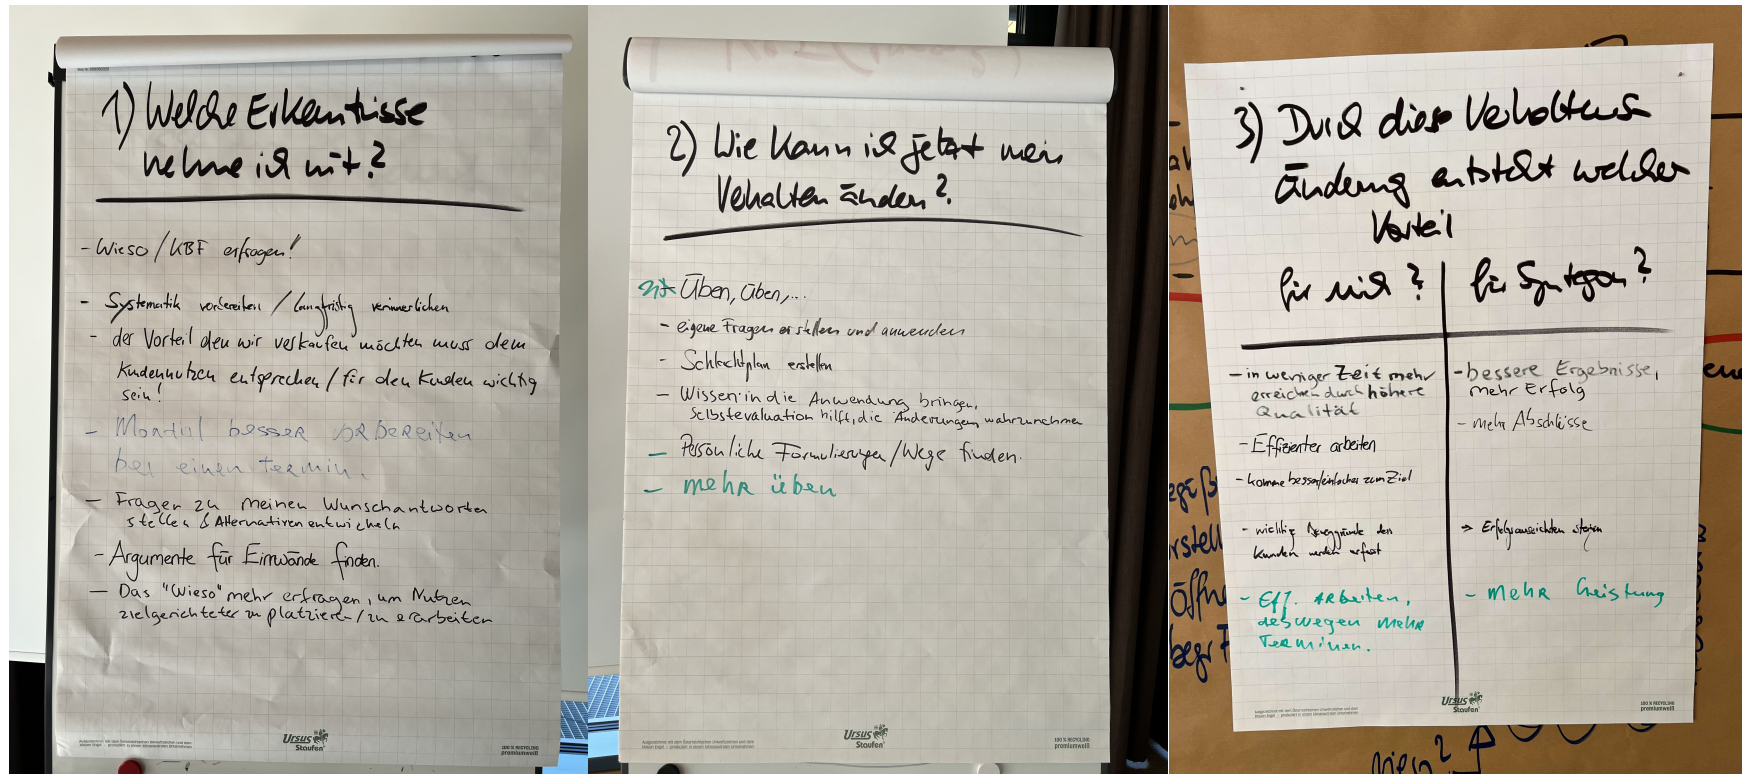 1) Welche Erkenntnisse
nehme ich mit?
- Wieso / KBF erfragen!
- Systematik vorbereiten / langfristig verinnerlichen
- der Vorteil den wir verkaufen möchten muss dem
Kundennutzen entsprechen / für den Kunden wichtig
sein!
- besser
bei einen Termin.
- Fragen zu meinen Wunschantworten
stellen & Alternativen entwickeln
- Argumente für Einwände finden.
- Das "Wieso" mehr erfragen, um Nutzen
zielgerichteter zu platzieren / zu erarbeiten
Ursus
Staufen
100 % RECYCLING
premiumweiß
2) Wie kann ich jetzt mein
Verhalten ändern?
- Üben, Üben, ...
- eigene Fragen erstellen und anwenden
- Schlachtplan erstellen
- Wissen in die Anwendung bringen,
Selbstevaluation hilft, die Änderungen wahrzunehmen
- Persönliche Formulierungen / Wege finden.
- mehr üben
Ursus
Staufen
100 % RECYCLING
premiumweiß
3) Durch diese Verhaltens
änderung entsteht welcher
Vorteil
für mich?
- in weniger Zeit mehr
erreichen durch höhere
Qualität
- Effizienter arbeiten
- komme besser/einfacher zum Ziel
- wichtige Beweggründe des
Kunden werden erfasst
- Eff. Arbeiten,
deswegen mehr
Terminen.
für Syntegon?
- bessere Ergebnisse,
mehr Erfolg
- mehr Abschlüsse
→ Erfolgsaussichten steigen
- mehr Leistung
Ursus
Staufen
100 % RECYCLING
premiumweiß